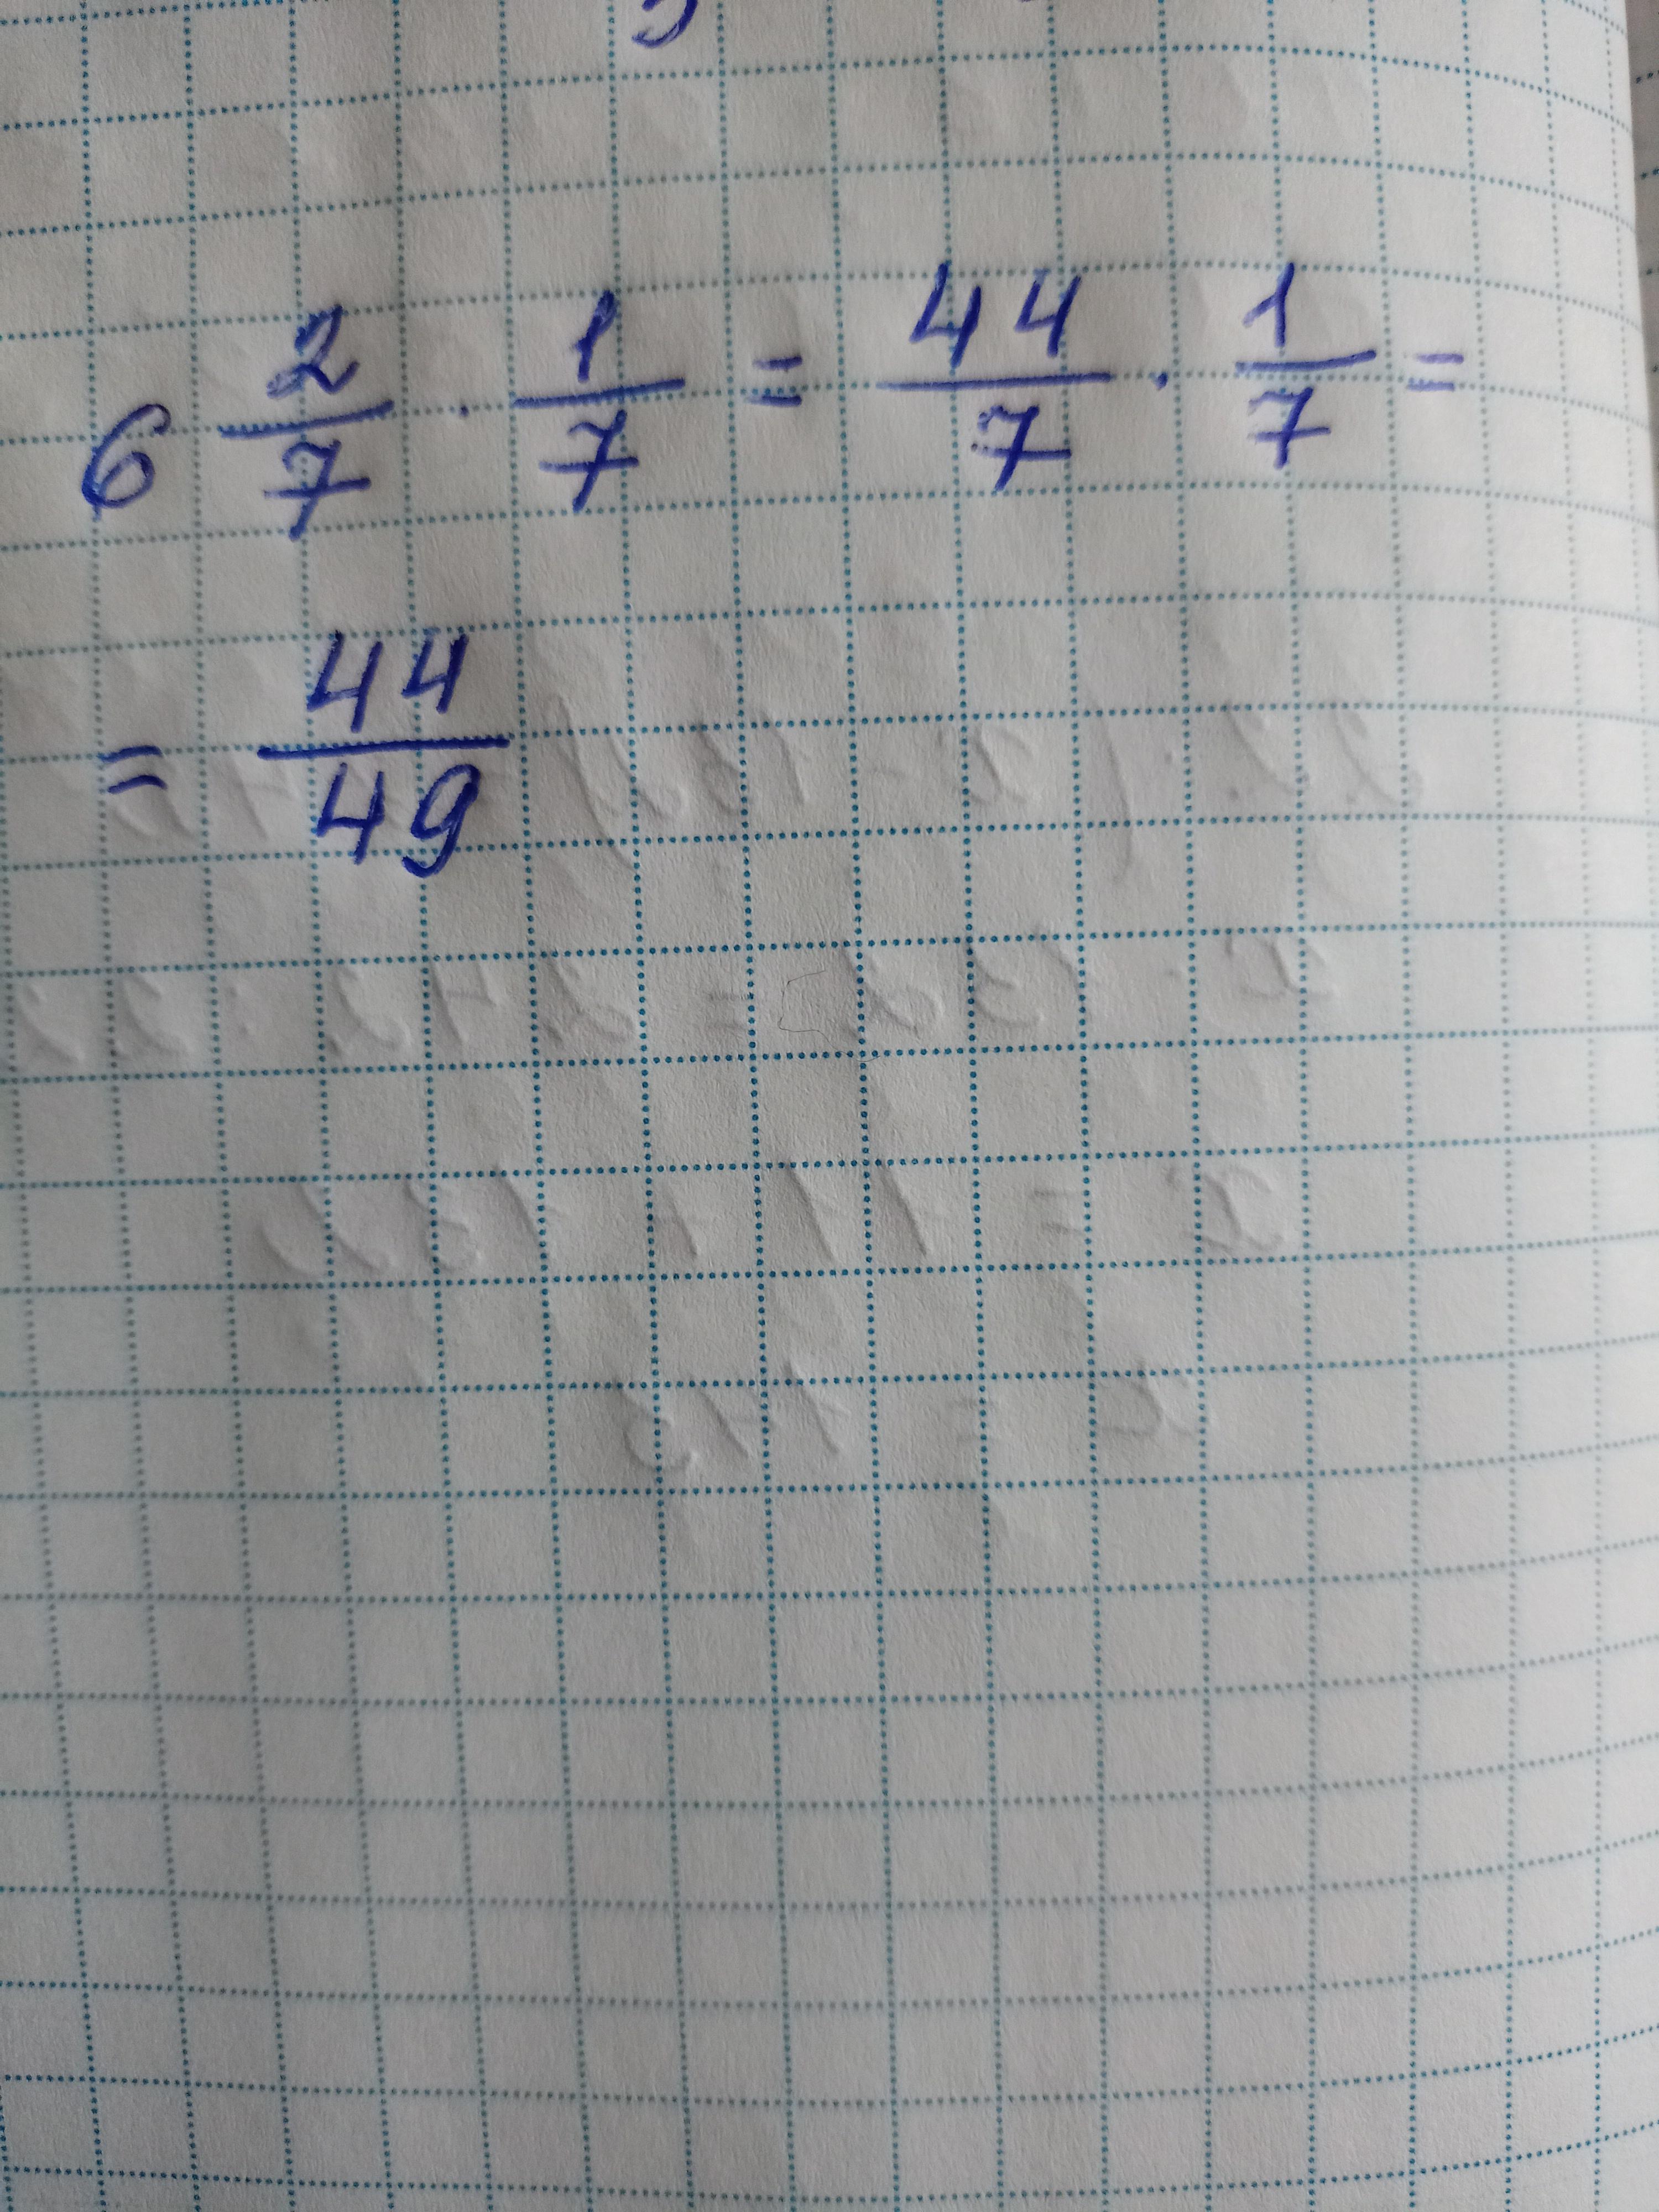 6 2/7 · 1/7 = 44/7 · 1/7 =
= 44/49